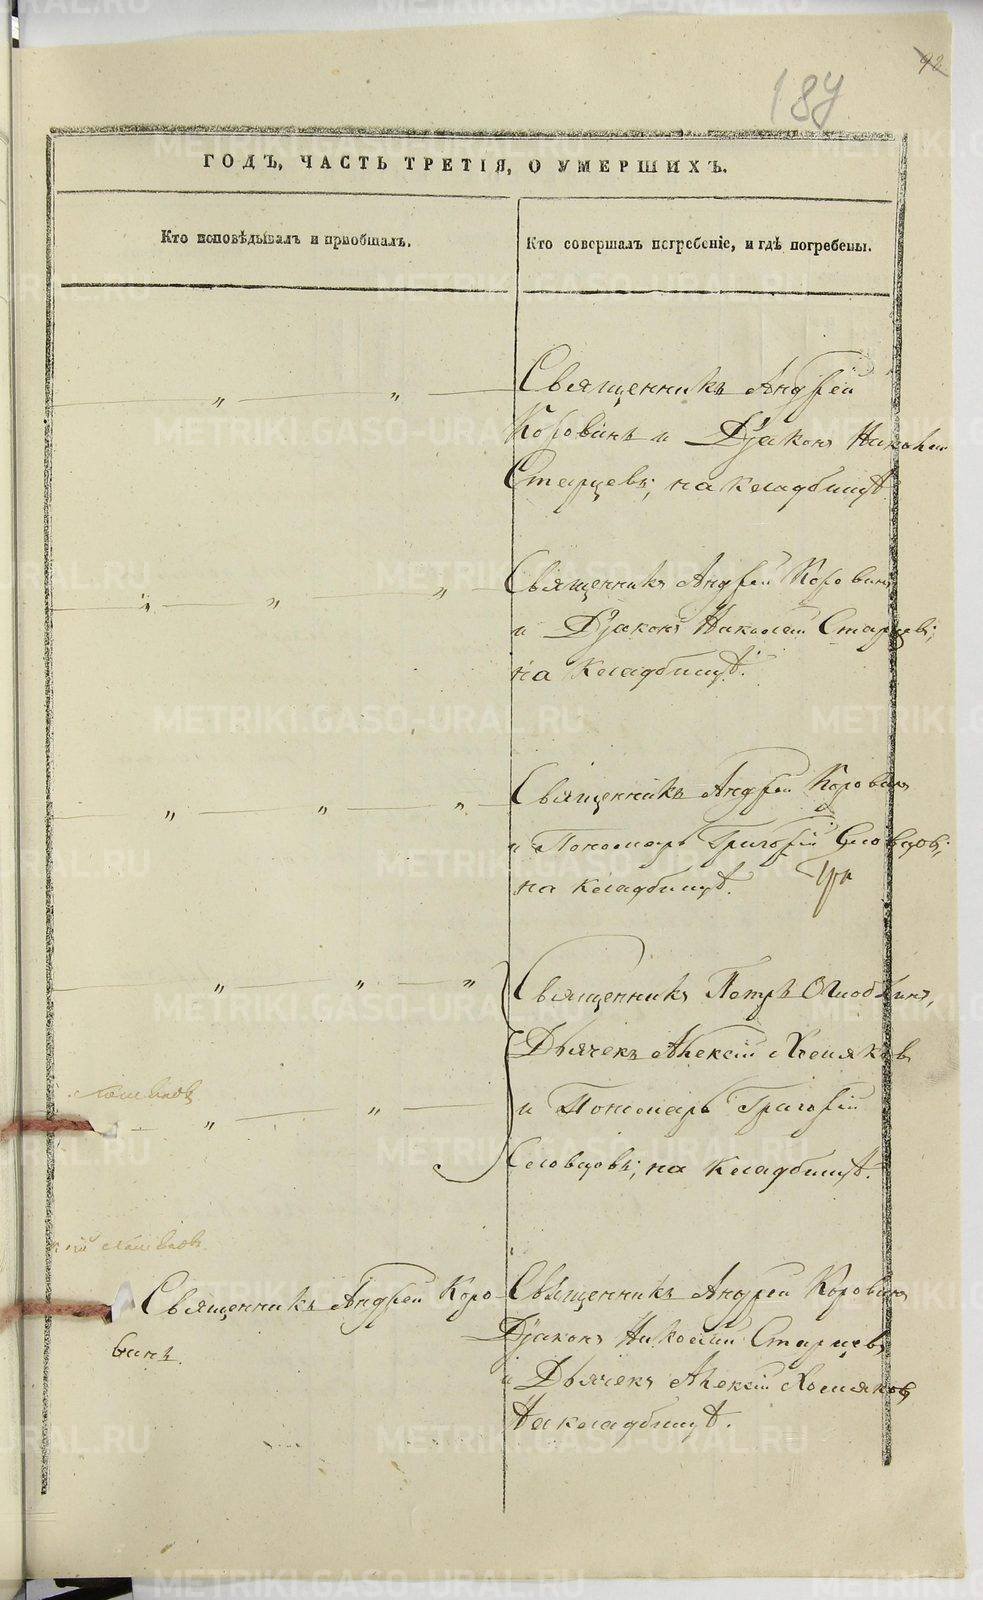 187
92
ГОДЪ, ЧАСТЬ ТРЕТІЯ, О УМЕРШИХЪ.
Кто исповѣдывалъ и пріобщалъ.
Кто совершалъ погребеніе, и гдѣ погребены.
Священникъ Андрей
Коровинъ и Діаконъ Николай
Старцевъ; на кладбищѣ
Священникъ Андрей Коровинъ
и Діаконъ Николай Старцевъ;
на кладбищѣ.
Священникъ Андрей Коровинъ
и Пономарь Григорій Словцовъ;
на кладбищѣ.
Священникъ Петръ Оглоблинъ,
Дьячекъ Алексій Хомяковъ
и Пономарь Григорій
Словцовъ; на кладбищѣ.
Священникъ Андрей Коро-
винъ.
Священникъ Андрей Коровинъ
Діаконъ Николай Старцевъ
и Дьячекъ Алексій Хомяковъ
На кладбищѣ.
METRIKI.GASO-URAL.RU